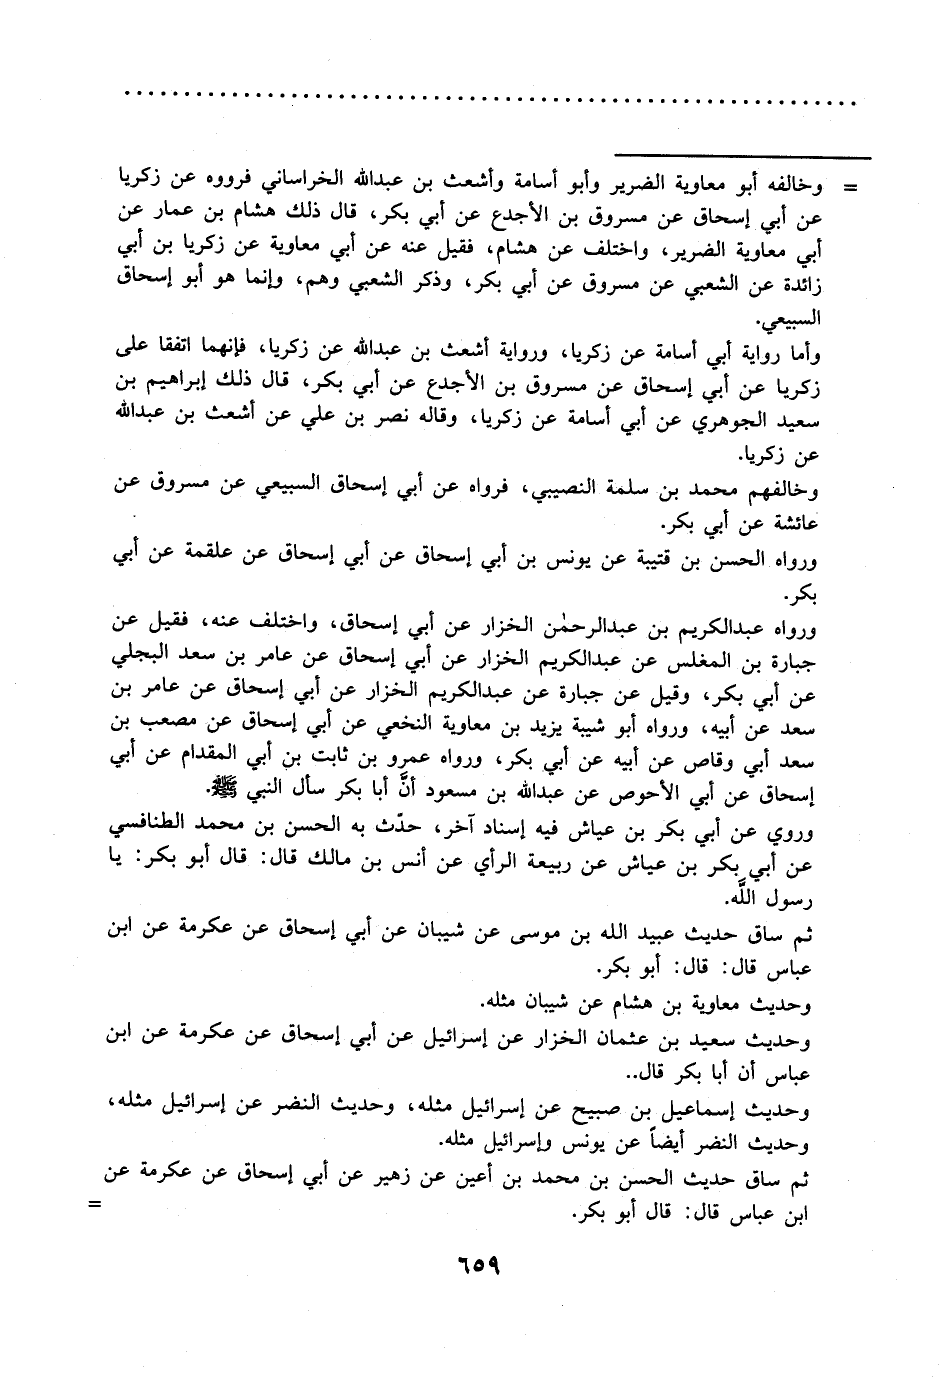 = وخالفه أبو معاوية الضرير وأبو أسامة وأشعث بن عبدالله الخراساني فرووه عن زكريا
عن أبي إسحاق عن مسروق بن الأجدع عن أبي بكر، قال ذلك هشام بن عمار عن
أبي معاوية الضرير، واختلف عن هشام، فقيل عنه عن أبي معاوية عن زكريا بن أبي
زائدة عن الشعبي عن مسروق عن أبي بكر، وذكر الشعبي وهم، وإنما هو أبو إسحاق
السبيعي.
وأما رواية أبي أسامة عن زكريا، ورواية أشعث بن عبدالله عن زكريا، فإنهما اتفقا على
زكريا عن أبي إسحاق عن مسروق بن الأجدع عن أبي بكر، قال ذلك إبراهيم بن
سعيد الجوهري عن أبي أسامة عن زكريا، وقاله نصر بن علي عن أشعث بن عبدالله
عن زكريا.
وخالفهم محمد بن سلمة النصيبي، فرواه عن أبي إسحاق السبيعي عن مسروق عن
عائشة عن أبي بكر.
ورواه الحسن بن قتيبة عن يونس بن أبي إسحاق عن أبي إسحاق عن علقمة عن أبي
بكر.
ورواه عبدالكريم بن عبدالرحمٰن الخزار عن أبي إسحاق، واختلف عنه، فقيل عن
جبارة بن المغلس عن عبدالكريم الخزار عن أبي إسحاق عن عامر بن سعد البجلي
عن أبي بكر، وقيل عن جبارة عن عبدالكريم الخزار عن أبي إسحاق عن عامر بن
سعد عن أبيه، ورواه أبو شيبة يزيد بن معاوية النخعي عن أبي إسحاق عن مصعب بن
سعد أبي وقاص عن أبيه عن أبي بكر، ورواه عمرو بن ثابت بن أبي المقدام عن أبي
إسحاق عن أبي الأحوص عن عبدالله بن مسعود أنَّ أبا بكر سأل النبي ﷺ.
وروي عن أبي بكر بن عياش فيه إسناد آخر، حدّث به الحسن بن محمد الطنافسي
عن أبي بكر بن عياش عن ربيعة الرأي عن أنس بن مالك قال: قال أبو بكر: يا
رسول اللَّه.
ثم ساق حديث عبيد الله بن موسى عن شيبان عن أبي إسحاق عن عكرمة عن ابن
عباس قال: قال: أبو بكر.
وحديث معاوية بن هشام عن شيبان مثله.
وحديث سعيد بن عثمان الخزار عن إسرائيل عن أبي إسحاق عن عكرمة عن ابن
عباس أن أبا بكر قال..
وحديث إسماعيل بن صبيح عن إسرائيل مثله، وحديث النضر عن إسرائيل مثله،
وحديث النضر أيضاً عن يونس وإسرائيل مثله.
ثم ساق حديث الحسن بن محمد بن أعين عن زهير عن أبي إسحاق عن عكرمة عن
ابن عباس قال: قال أبو بكر. =
٦٥٩